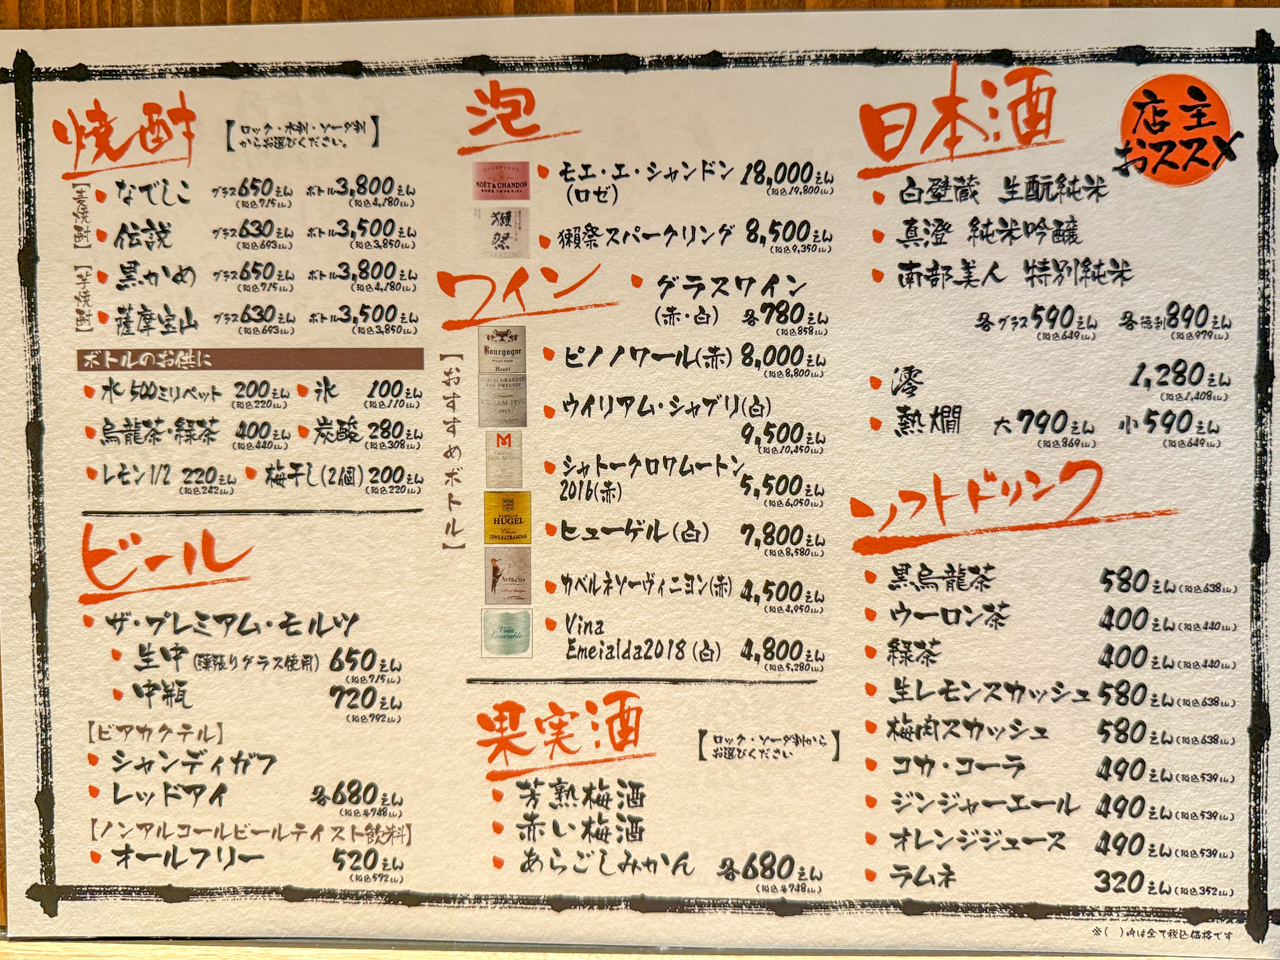 焼酎
【ロック・水割・ソーダ割
からお選びください。】
【麦焼酎】
・なでしこ グラス650えん (税込715えん) ボトル3,800えん (税込4,180えん)
・伝説 グラス630えん (税込693えん) ボトル3,500えん (税込3,850えん)
【芋焼酎】
・黒かめ グラス650えん (税込715えん) ボトル3,800えん (税込4,180えん)
・薩摩宝山 グラス630えん (税込693えん) ボトル3,500えん (税込3,850えん)
ボトルのお供に
・水 500ミリペット 200えん (税込220えん) ・氷 100えん (税込110えん)
・烏龍茶・緑茶 400えん (税込440えん) ・炭酸 280えん (税込308えん)
・レモン1/2 220えん (税込242えん) ・梅干し(2個) 200えん (税込220えん)
ビール
・ザ・プレミアム・モルツ
・生中(薄張りグラス使用) 650えん (税込715えん)
・中瓶 720えん (税込792えん)
【ビアカクテル】
・シャンディガフ
・レッドアイ 各680えん (税込各748えん)
【ノンアルコールビールテイスト飲料】
・オールフリー 520えん (税込572えん)
泡
MOËT & CHANDON
・モエ・エ・シャンドン 18,000えん
(ロゼ) (税込19,800えん)
獺祭
・獺祭スパークリング 8,500えん (税込9,350えん)
ワイン
・グラスワイン
(赤・白) 各780えん (税込858えん)
【おすすめボトル】
Bourgogne
Henri
・ピノノワール(赤) 8,000えん (税込8,800えん)
・ウイリアム・シャブリ(白)
9,500えん (税込10,450えん)
M
・シャトークロワムートン
2016(赤) 5,500えん (税込6,050えん)
HUGEL
・ヒューゲル(白) 7,800えん (税込8,580えん)
・カベルネソーヴィニヨン(赤) 4,500えん (税込4,950えん)
Viña Esmeralda
・Vina
Emeialda2018(白) 4,800えん (税込5,280えん)
果実酒
【ロック・ソーダ割から
お選びください】
・芳熟梅酒
・赤い梅酒
・あらごしみかん 各680えん (税込各748えん)
日本酒
店主
おススメ
・白壁蔵 生酛純米
・真澄 純米吟醸
・南部美人 特別純米
各グラス590えん (税込649えん) 各徳利890えん (税込979えん)
・澪 1,280えん (税込1,408えん)
・熱燗 大790えん (税込869えん) 小590えん (税込649えん)
ソフトドリンク
・黒烏龍茶 580えん(税込638えん)
・ウーロン茶 400えん(税込440えん)
・緑茶 400えん(税込440えん)
・生レモンスカッシュ 580えん(税込638えん)
・梅肉スカッシュ 580えん(税込638えん)
・コカ・コーラ 490えん(税込539えん)
・ジンジャーエール 490えん(税込539えん)
・オレンジジュース 490えん(税込539えん)
・ラムネ 320えん(税込352えん)
※( )内は全て税込価格です